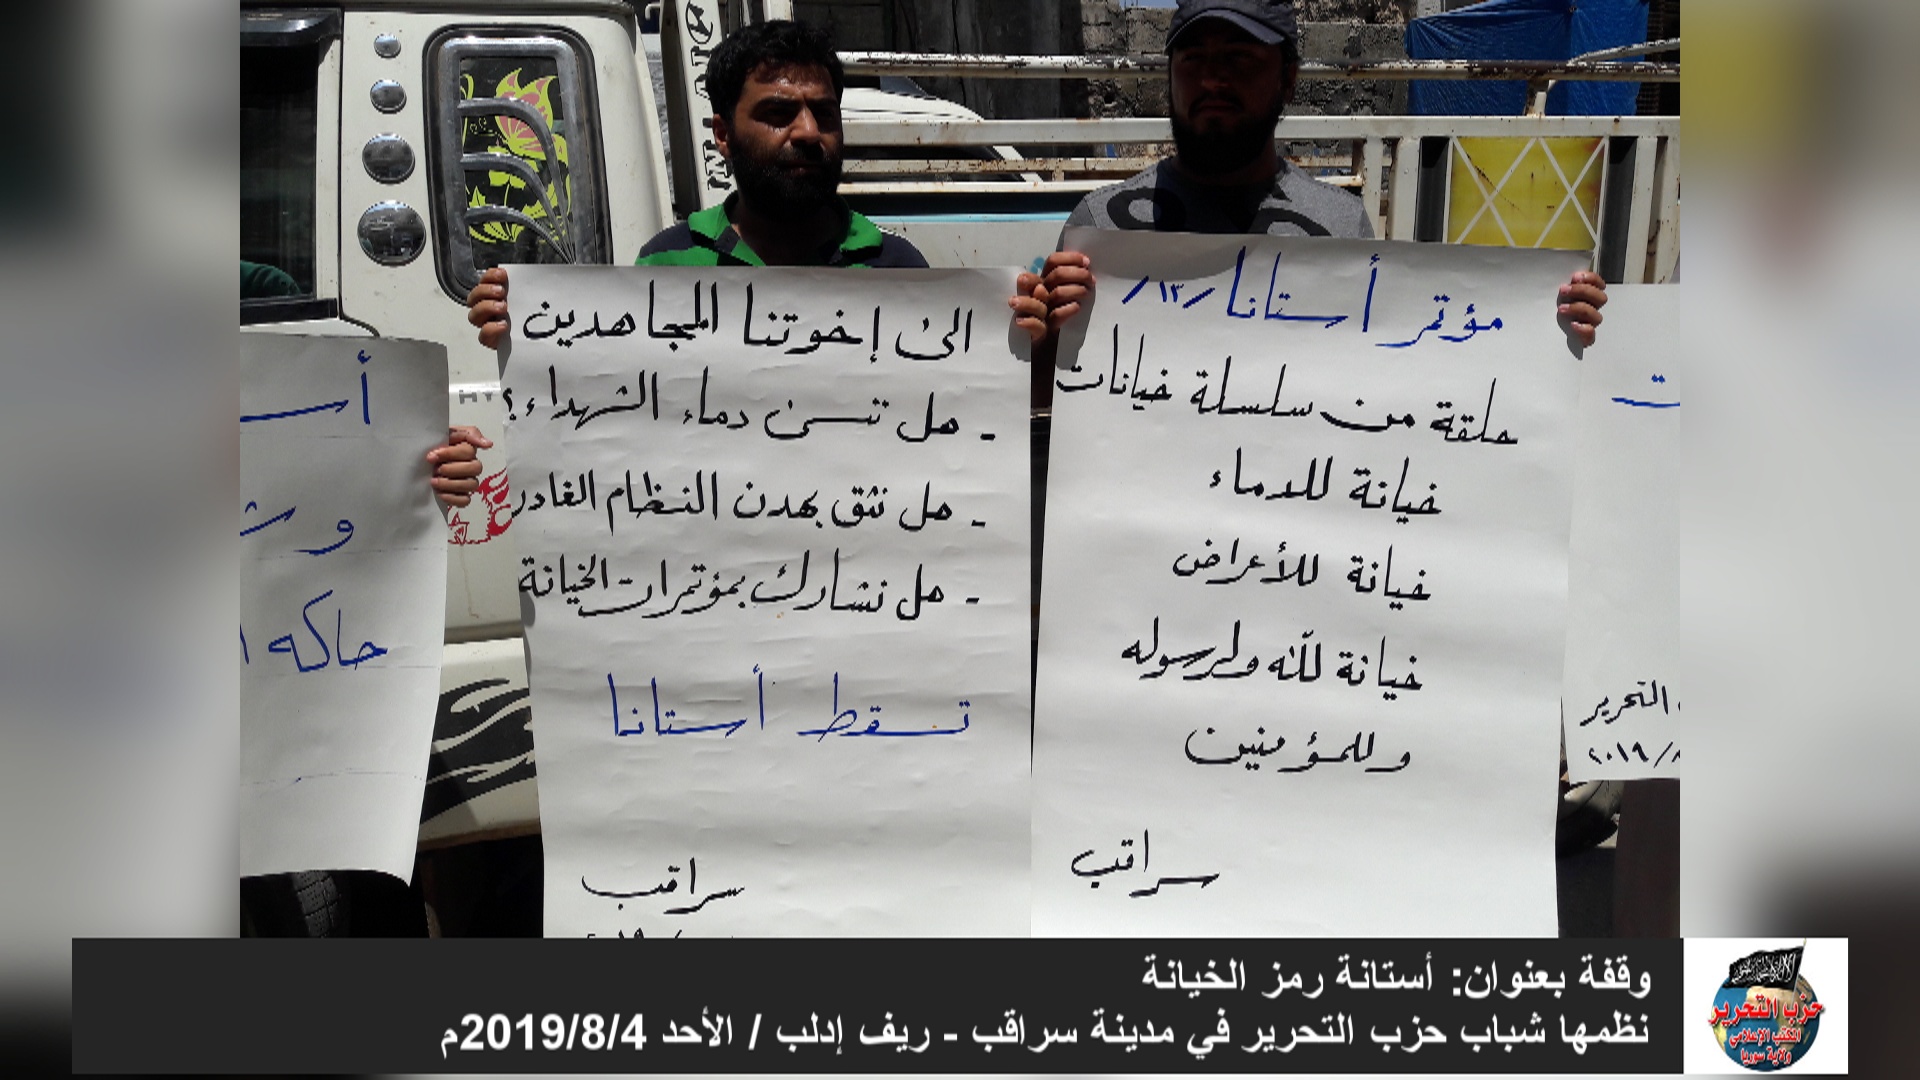 مؤتمر أستانا /١٣/
حلقة من سلسلة خيانات
خيانة للدماء
خيانة للأعراض
خيانة لله ولرسوله
وللمؤمنين
سراقب
الى إخوتنا المجاهدين
- هل ننسى دماء الشهداء؟
- هل نثق بهدن النظام الغادر
- هل نشارك بمؤتمرات الخيانة
تسقط أستانا
سراقب
التحرير
وقفة بعنوان: أستانة رمز الخيانة
نظمها شباب حزب التحرير في مدينة سراقب - ريف إدلب / الأحد 2019/8/4م
حزب التحرير
المكتب الإعلامي
ولاية سوريا